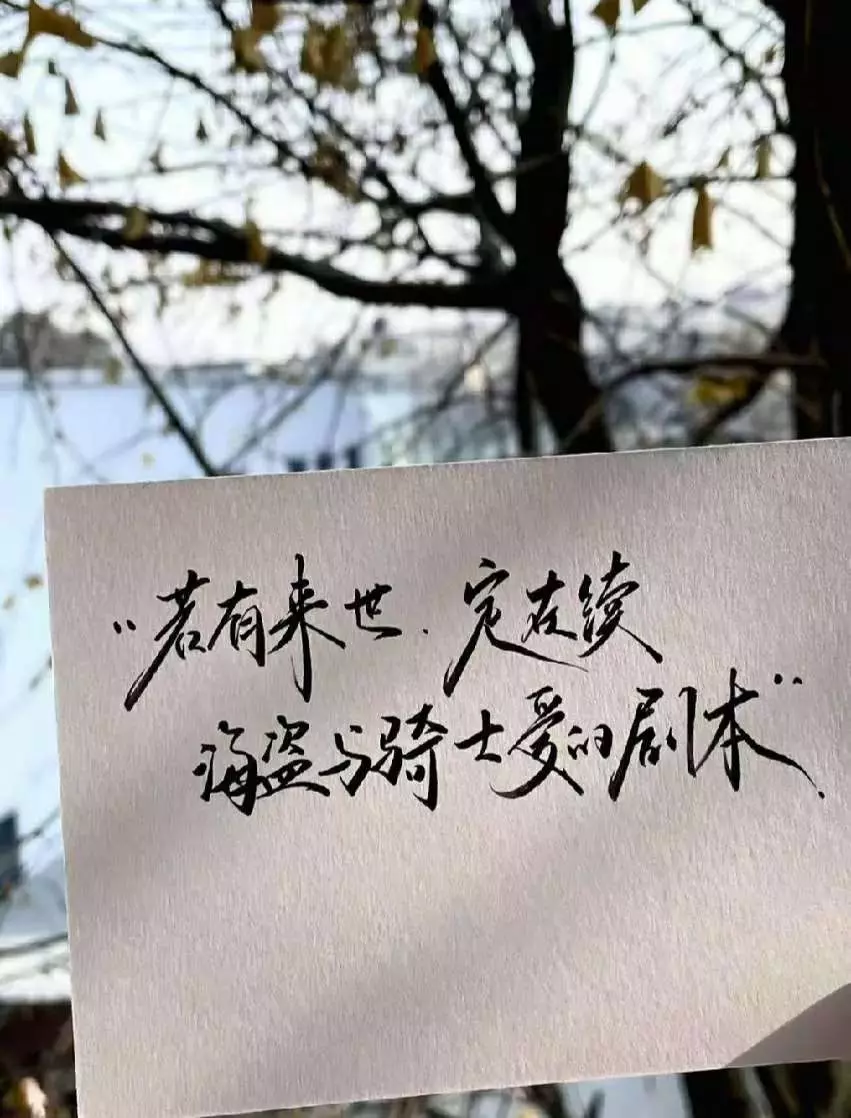 “若有来世.定在续
海盗与骑士爱的剧本”.